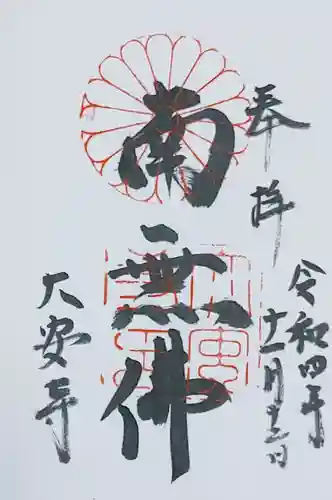 奉拝
令和四年
十一月十二日
南無佛
大安寺